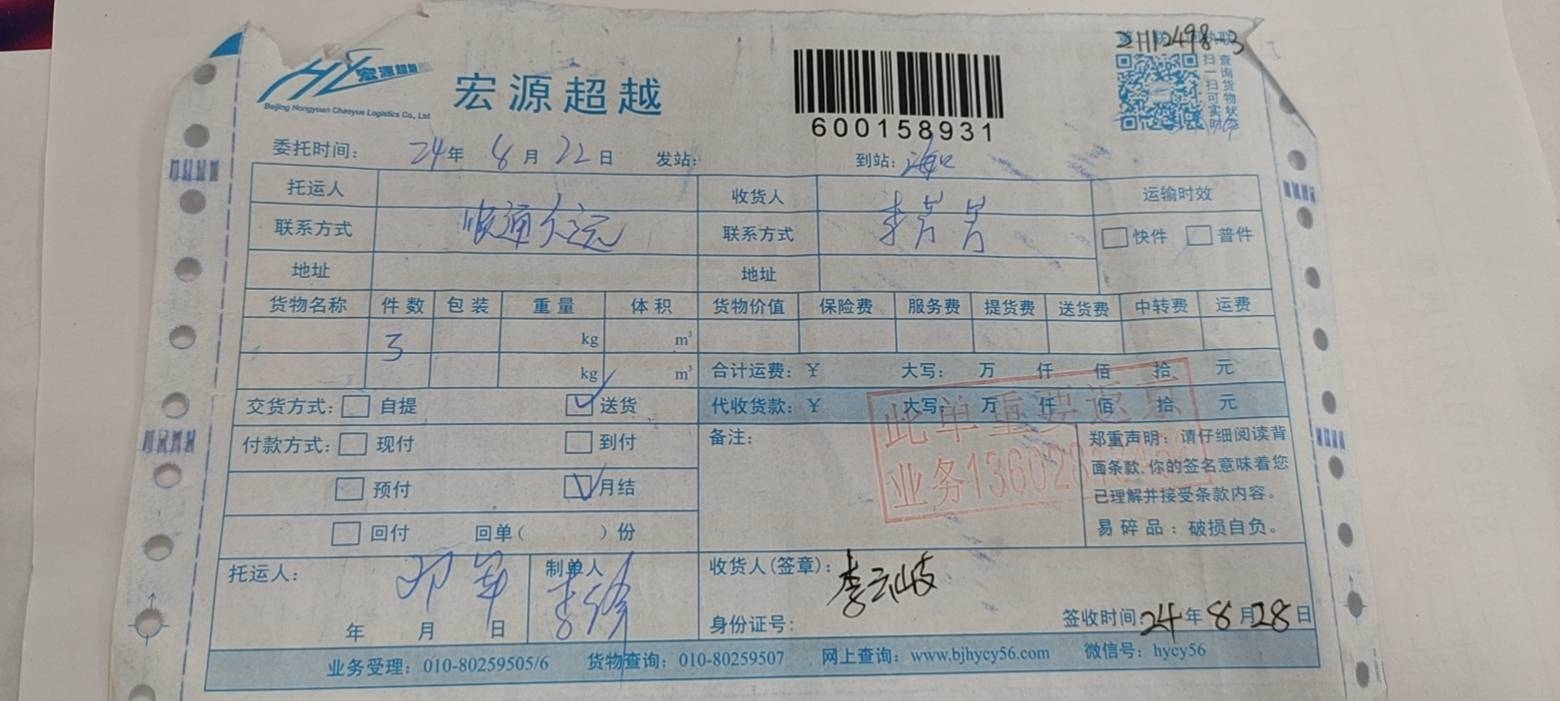 2H12498-3
宏源超越
Beijing Hongyuan Chaoyue Logistics Co., Ltd
宏源超越
600158931
扫一扫可实时
查询货物状态
委托时间: 24年 8月 22日 发站: 到站: 海口
托运人 收货人 运输时效
联系方式 顺通久远 联系方式 李芳芳 快件 普件
地址 地址
货物名称 件数 包装 重量 体积 货物价值 保险费 服务费 提货费 送货费 中转费 运费
3 kg m³
kg m³ 合计运费: ¥ 大写: 万 仟 佰 拾 元
交货方式: 自提 送货 代收货款: ¥ 大写: 万 仟 佰 拾 元
付款方式: 现付 到付 备注:
预付 月结
回付 回单( )份
此单重要速
业务13602
郑重声明: 请仔细阅读背
面条款,你的签名意味着您
已理解并接受条款内容。
易碎品: 破损自负。
托运人: 邓军 制单人 收货人(签章): 李云岐
年 月 日 身份证号: 签收时间: 24年8月28日
业务受理: 010-80259505/6 货物查询: 010-80259507 网上查询: www.bjhycy56.com 微信号: hycy56